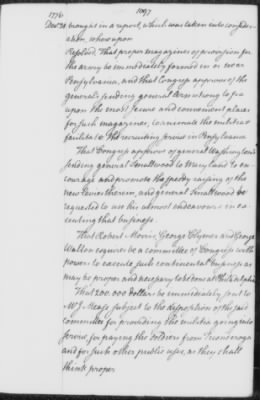 1097
1776
Decr 21 brought in a report, which was taken into consider-
ation, whereupon
Resolved, That proper magazines of provision for
the army be immediately formed in or near
Pensylvania, and that Congress approves of the
general's sending general Armstrong to fix
upon the most secure and convenient places
for such magazines, to animate the militia &
facilitate the recruiting service in Pensylvania
That Congress approve of general Washington's
sending general Smallwood to Maryland to en-
courage and promote the speedy raising of the
new levies therein, and general Smallwood be
requested to use his utmost endeavours in ex-
ecuting that business.
That Robert Morris, George Clymer and George
Walton esquires be a committee of Congress with
powers to execute such continental business as
may be proper and necessary to be done at Philadelphia
That 200.000 dollars be immediately sent to
Mr J. Mease subject to the disposition of the said
committee for providing the militia going into
service, for paying the soldiers from Ticonderoga
and for such other public uses, as they shall
think proper